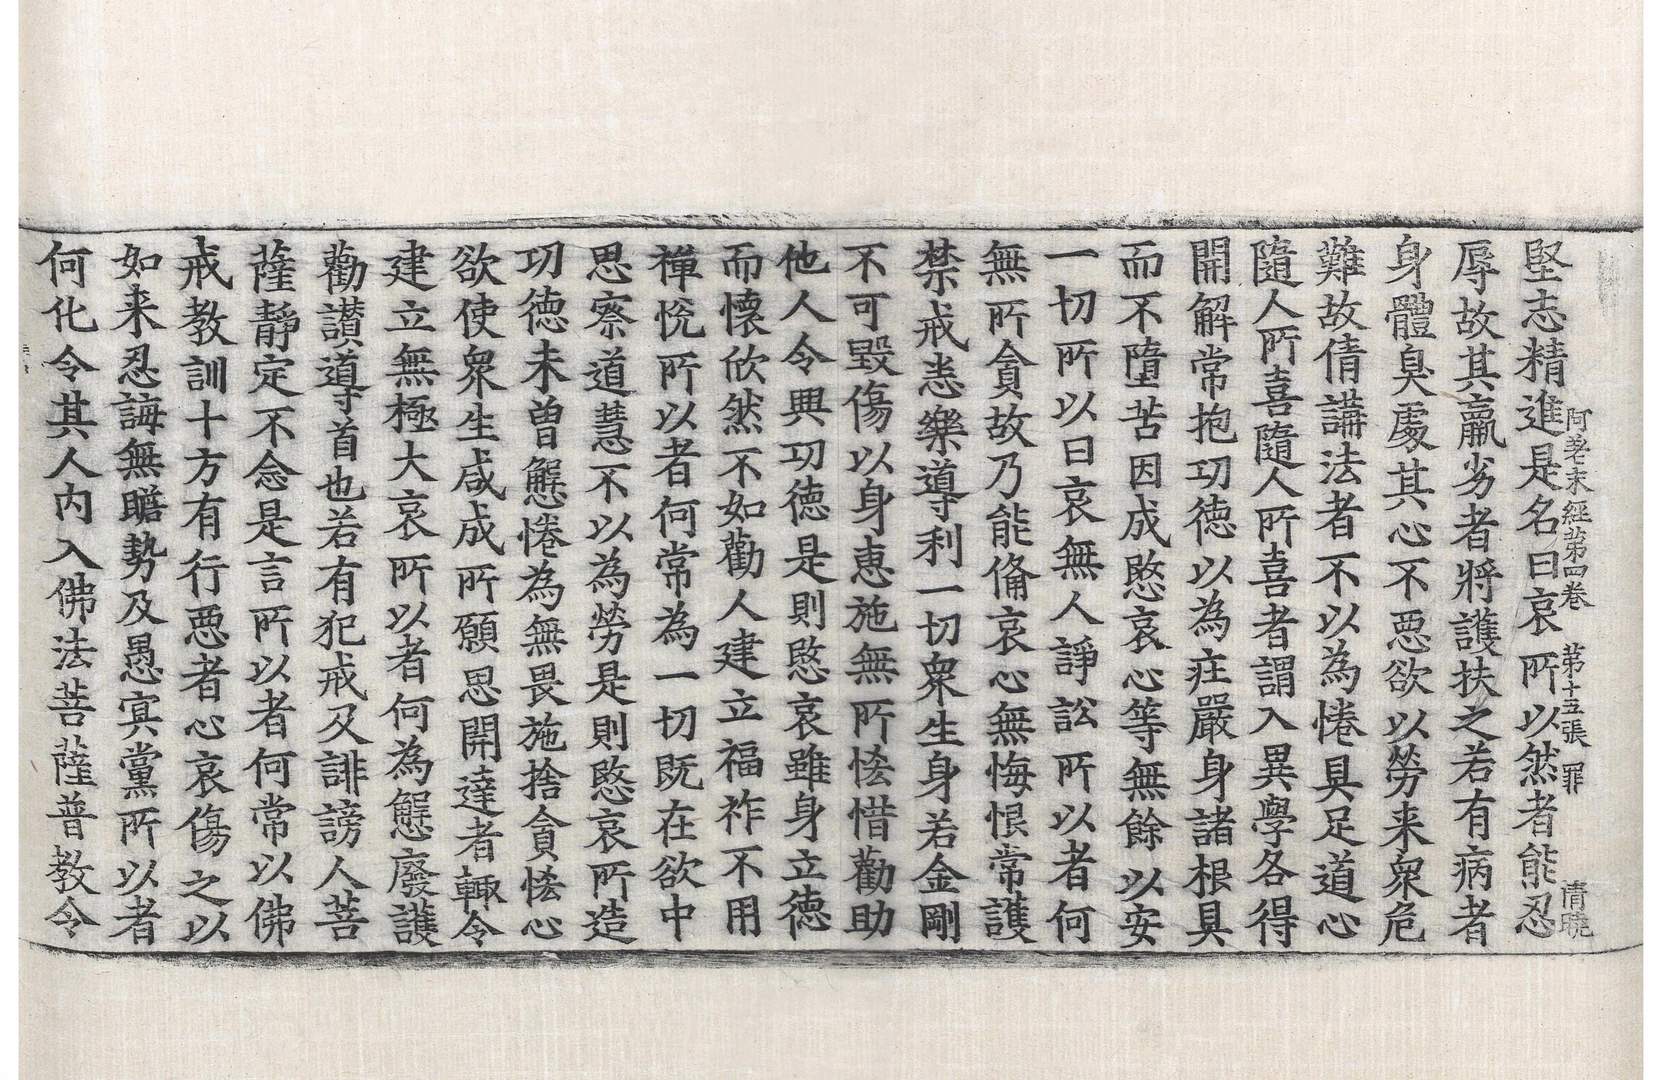 阿差末經第四卷 第十五張 罪 淸曉
堅志精進是名曰哀所以然者能忍
辱故其羸劣者將護扶之若有病者
身體臭處其心不惡欲以勞来衆危
難故倩講法者不以為惓具足道心
隨人所喜隨人所喜者謂入異學各得
開解常抱功德以為疰嚴身諸根具
而不墮苦因成愍哀心等無餘以安
一切所以曰哀無人諍訟所以者何
無所貪故乃能俻哀心無悔恨常護
禁戒恚樂導利一切衆生身若金剛
不可毀傷以身惠施無所恡惜勸助
他人令興功德是則愍哀雖身立德
而懷欣然不如勸人建立福祚不用
禅恱所以者何常為一切既在欲中
思察道慧不以為勞是則愍哀所造
功德未曽懈惓為無畏施捨貪恡心
欲使衆生咸成所願思開達者輙令
建立無極大哀所以者何為懈廢護
勸讃導首也若有犯戒及誹謗人菩
薩静定不念是言所以者何常以佛
戒教訓十方有行惡者心哀傷之以
如来忍誨無瞻勢及愚㝠黨所以者
何化令其人内入佛法菩薩普教令